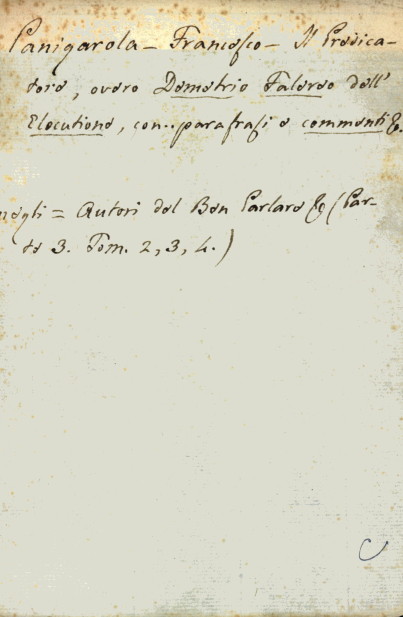 Panigarola - Francesco - Il Predica-
tore, overo Demetrio Falereo dell'
Elocutione, con.. parafrasi e commenti &.
negli = Autori del Ben Parlare & (Par-
te 3. Tom. 2, 3, 4.)
C